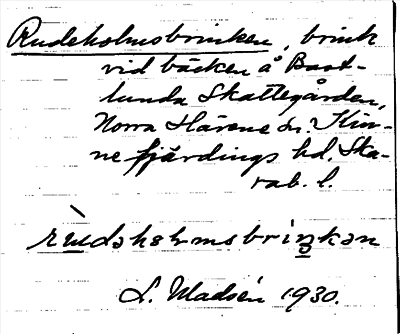 Rudeholmsbrinken, brink
vid bäcken å Bast-
lunda Skattegården,
Norra Härene sn. Kin-
ne fjärdings hd, Ska-
rab. l.
rùdəhəlmsbriŋkən
L. Madsén 1930.